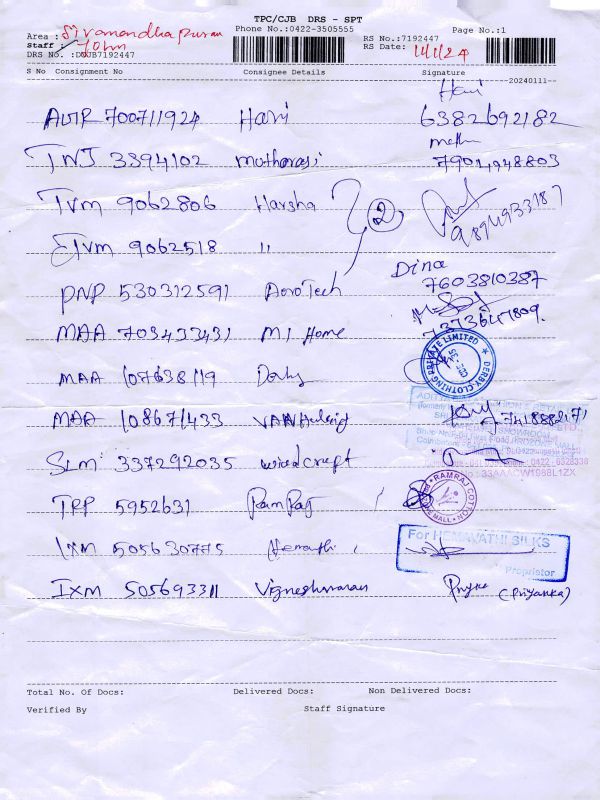 TPC/CJB DRS - SPT
Area : Sivanandhapuram Phone No.:0422-3505555 RS No.:7192447 Page No.:1
Staff : John RS Date: 11/1/24
DRS No.:DCJB7192447
S No Consignment No Consignee Details Signature
20240111
Hari
AUR 700711924 Hari 6382692182
TNJ 3394102 Matharasi
TVM 9062806 Harsha 2
TVM 9062518 "
Dina
PNP 530312591 AeroTech 7603810387
MAA 703433431 MI Home
DERBY CLOTHING PRIVATE LIMITED
MAA 107638119 Derby
MAA 108671433 VAN Huleig
SLM 337292035
33AAACW1088L1ZX
TRP 5952631 Ram Raj RAMRAJ COTTON
For HEMAVATHI SILKS
IXM 505630775 Hemathi
Proprietor
IXM 505693311 Vigneshwaran (Priyanka)
Total No. Of Docs: Delivered Docs: Non Delivered Docs:
Verified By Staff Signature